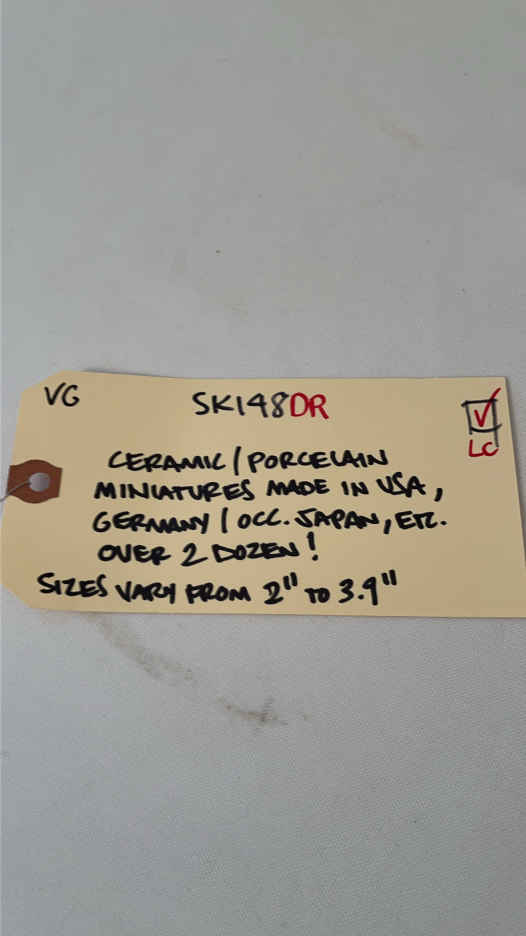 VG SK148DR
V
LC
CERAMIC / PORCELAIN
MINIATURES MADE IN USA,
GERMANY / OCC. JAPAN, ETC.
OVER 2 DOZEN!
SIZES VARY FROM 2" TO 3.9"